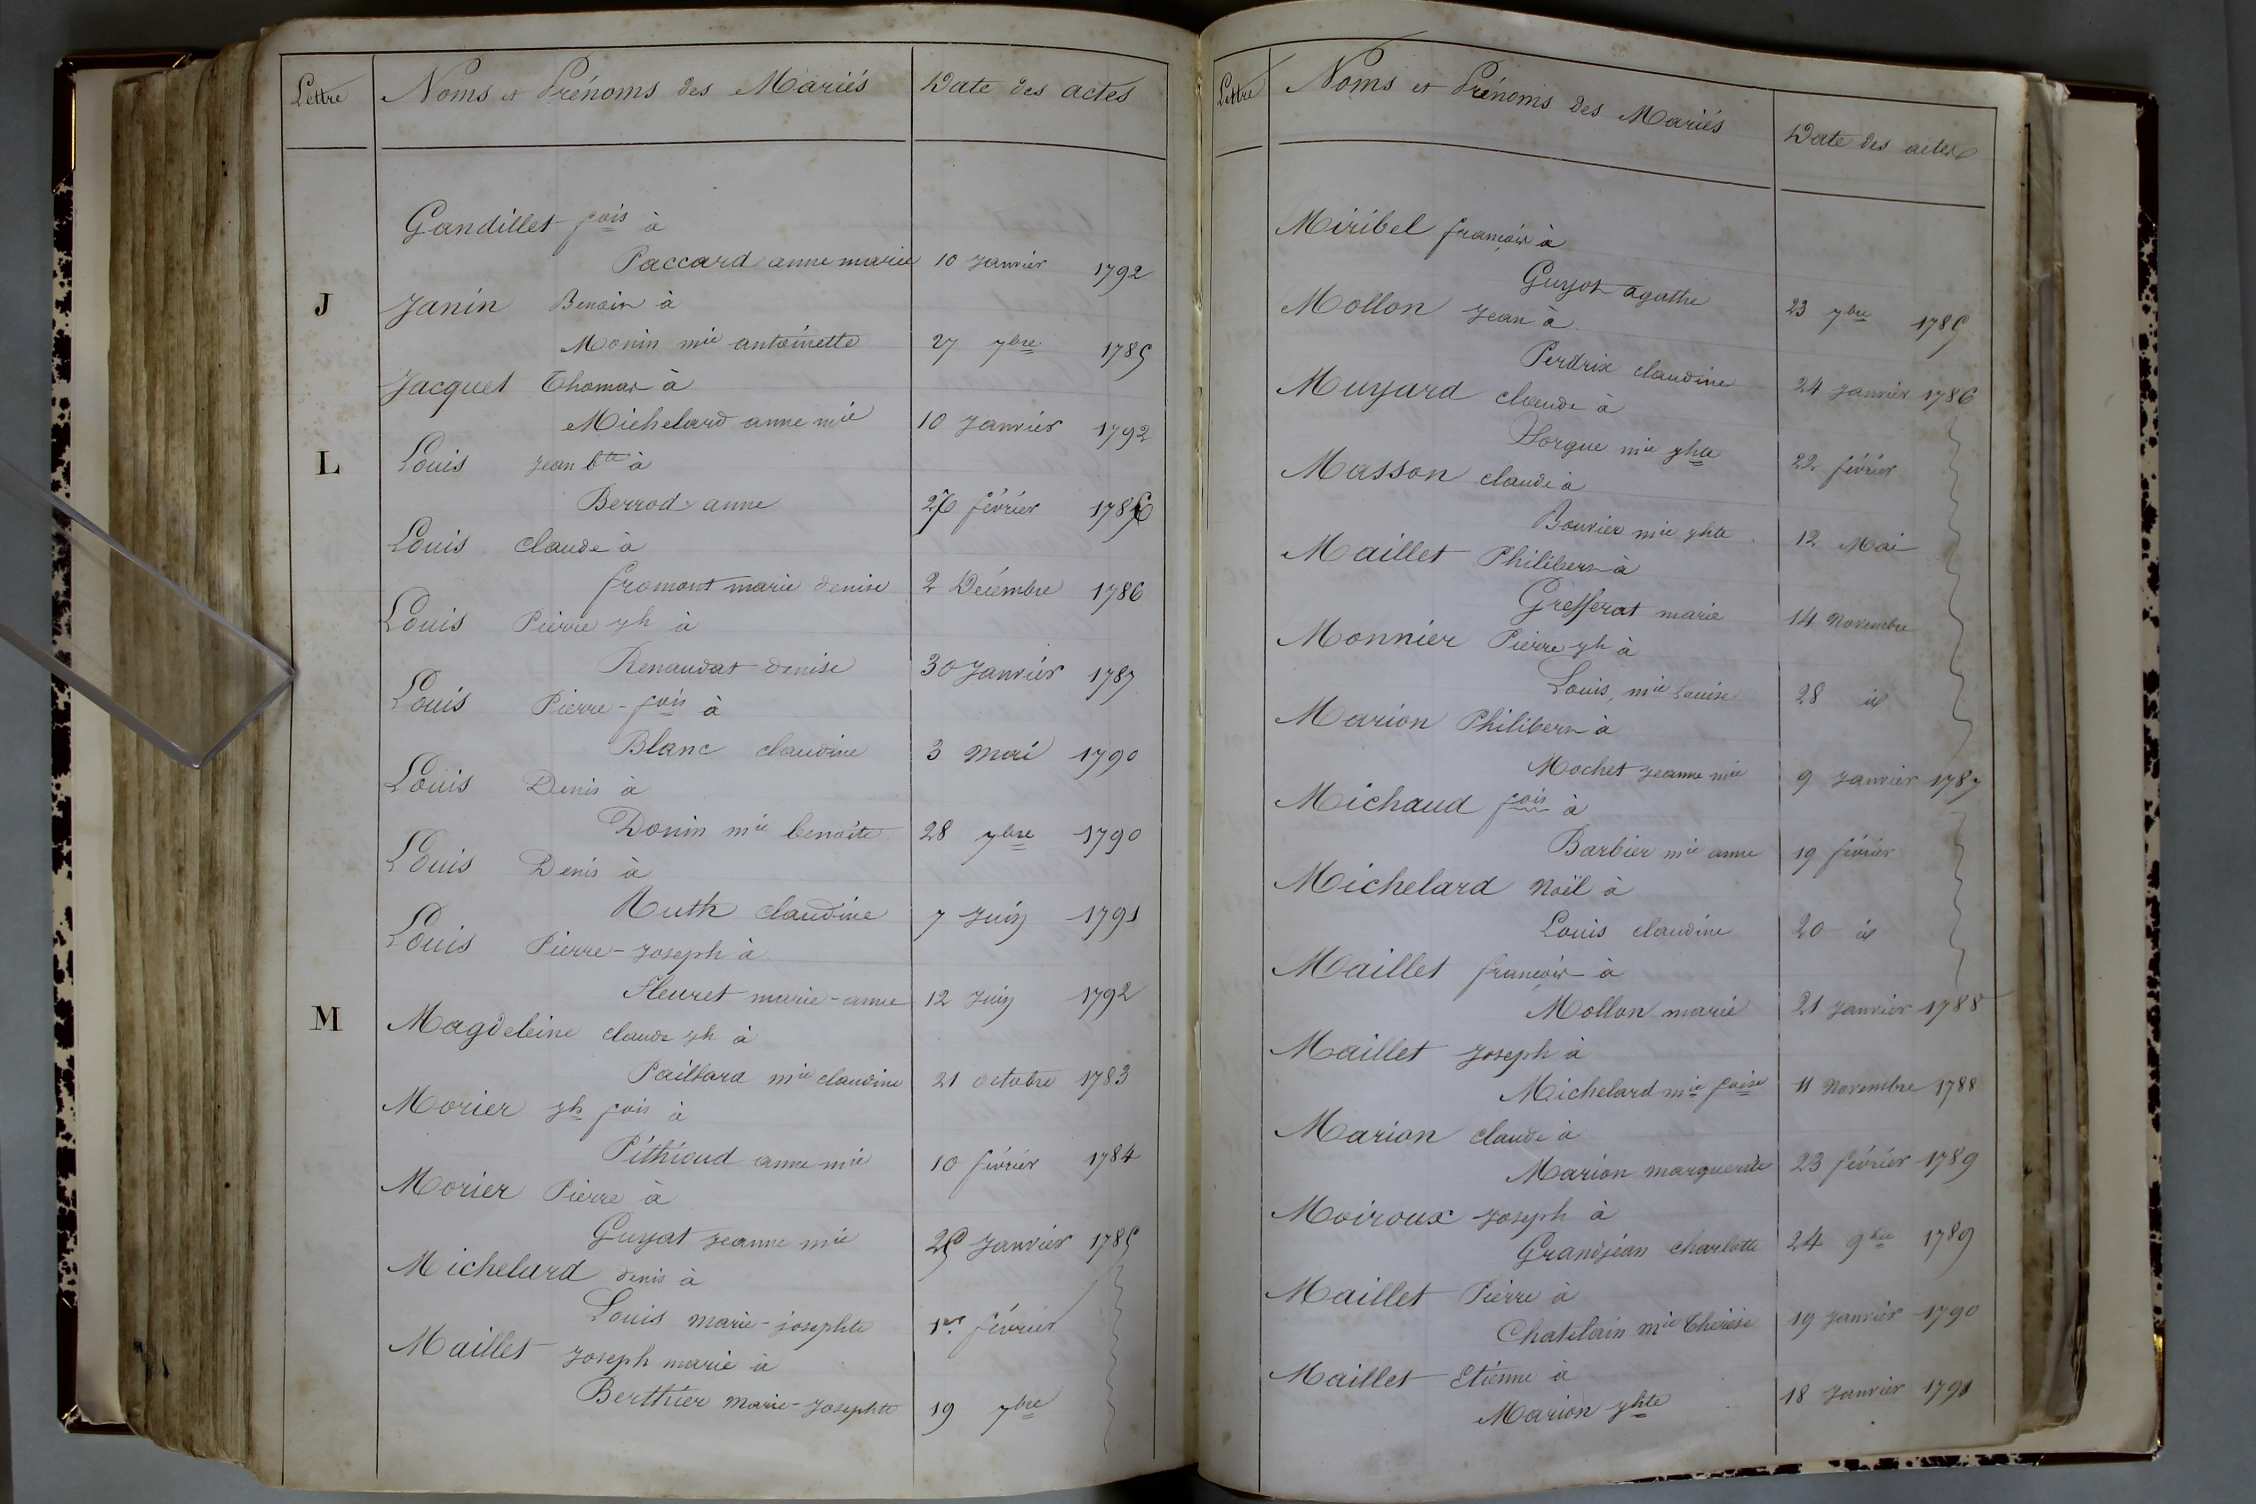 Lettre Noms et Prénoms des Mariés Date des actes
Gandillet fois à
Paccard anne marie 10 Janvier 1792
J Janin Benoin à
Monin mie antoinette 27 7bre 1785
Jacquet Thomas à
Michelard anne mie 10 Janvier 1792
L Louis Jean bte à
Berrod anne février
Louis claude à
fromont marie denise 2 Décembre 1786
Louis Pierre jh à
Renaudat denise 30 Janvier 1787
Louis Pierre-fois à
Blanc claudine 3 Mai 1790
Louis Denis à
Donin mie benoite 28 7bre 1790
Louis Denis à
Ruth claudine 7 Juin 1791
Louis Pierre-Joseph à
Fleuret marie-anne 12 Juin 1792
M Magdeleine claude jh à
Paillard mie claudine 21 octobre 1783
Morier jh fois à
Pithioud anne mie 10 février 1784
Morier Pierre à
Guyat Jeanne mie 25 Janvier 1785
Michelard denis à
Louis marie-josephte 1er février
Maillet Joseph marie à
Berthier Marie-Josephte 19 7bre
Lettre Noms et Prénoms des Mariés Date des actes
Miribel françois à
Guyot agathe 23 7bre 1785
Mollon Jean à
Perdrix claudine 24 Janvier 1786
Muyard claude à
mie jhte 22 février
Masson claude à
Bouvier mie jhte 12 Mai
Maillet Philibert à
Grefferat marie 14 Novembre
Monnier Pierre jh à
Louis, mie Louise 28 id
Marion Philibert à
Mochet Jeanne mie 9 Janvier 1787
Michaud fois à
Barbier mie anne 19 février
Michelard Noël à
Louis claudine 20 id
Maillet françois à
Mollon marie 21 Janvier 1788
Maillet Joseph à
Michelard mie foise 11 Novembre 1788
Marion claude à
Marion marguerite 23 février 1789
Moiroux Joseph à
Grandjean charlotte 24 9bre 1789
Maillet Pierre à
Chatelain mie Thérèse 19 Janvier 1790
Maillet Etienne à
Marion jhte 18 Janvier 1791